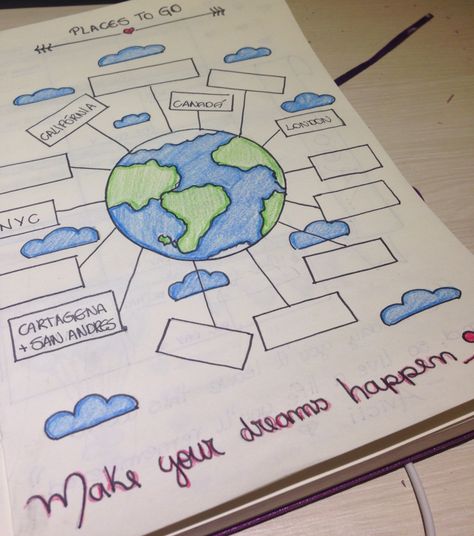 PLACES TO GO
CALIFÓRNIA
CANADÁ
LONDON
NYC
CARTAGENA
+ SAN ANDRES
Make your dreams happen.